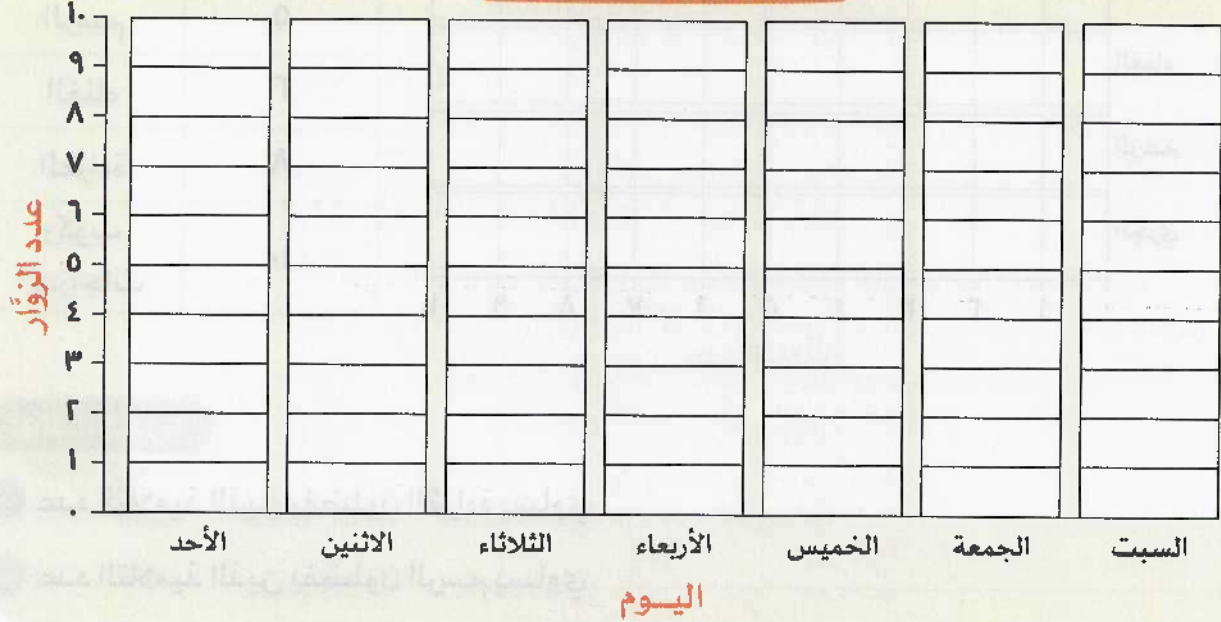 ١٠
٩
٨
٧
٦
٥
٤
٣
٢
١
٠
عدد الزوَّار
الأحد الاثنين الثلاثاء الأربعاء الخميس الجمعة السبت
اليــوم